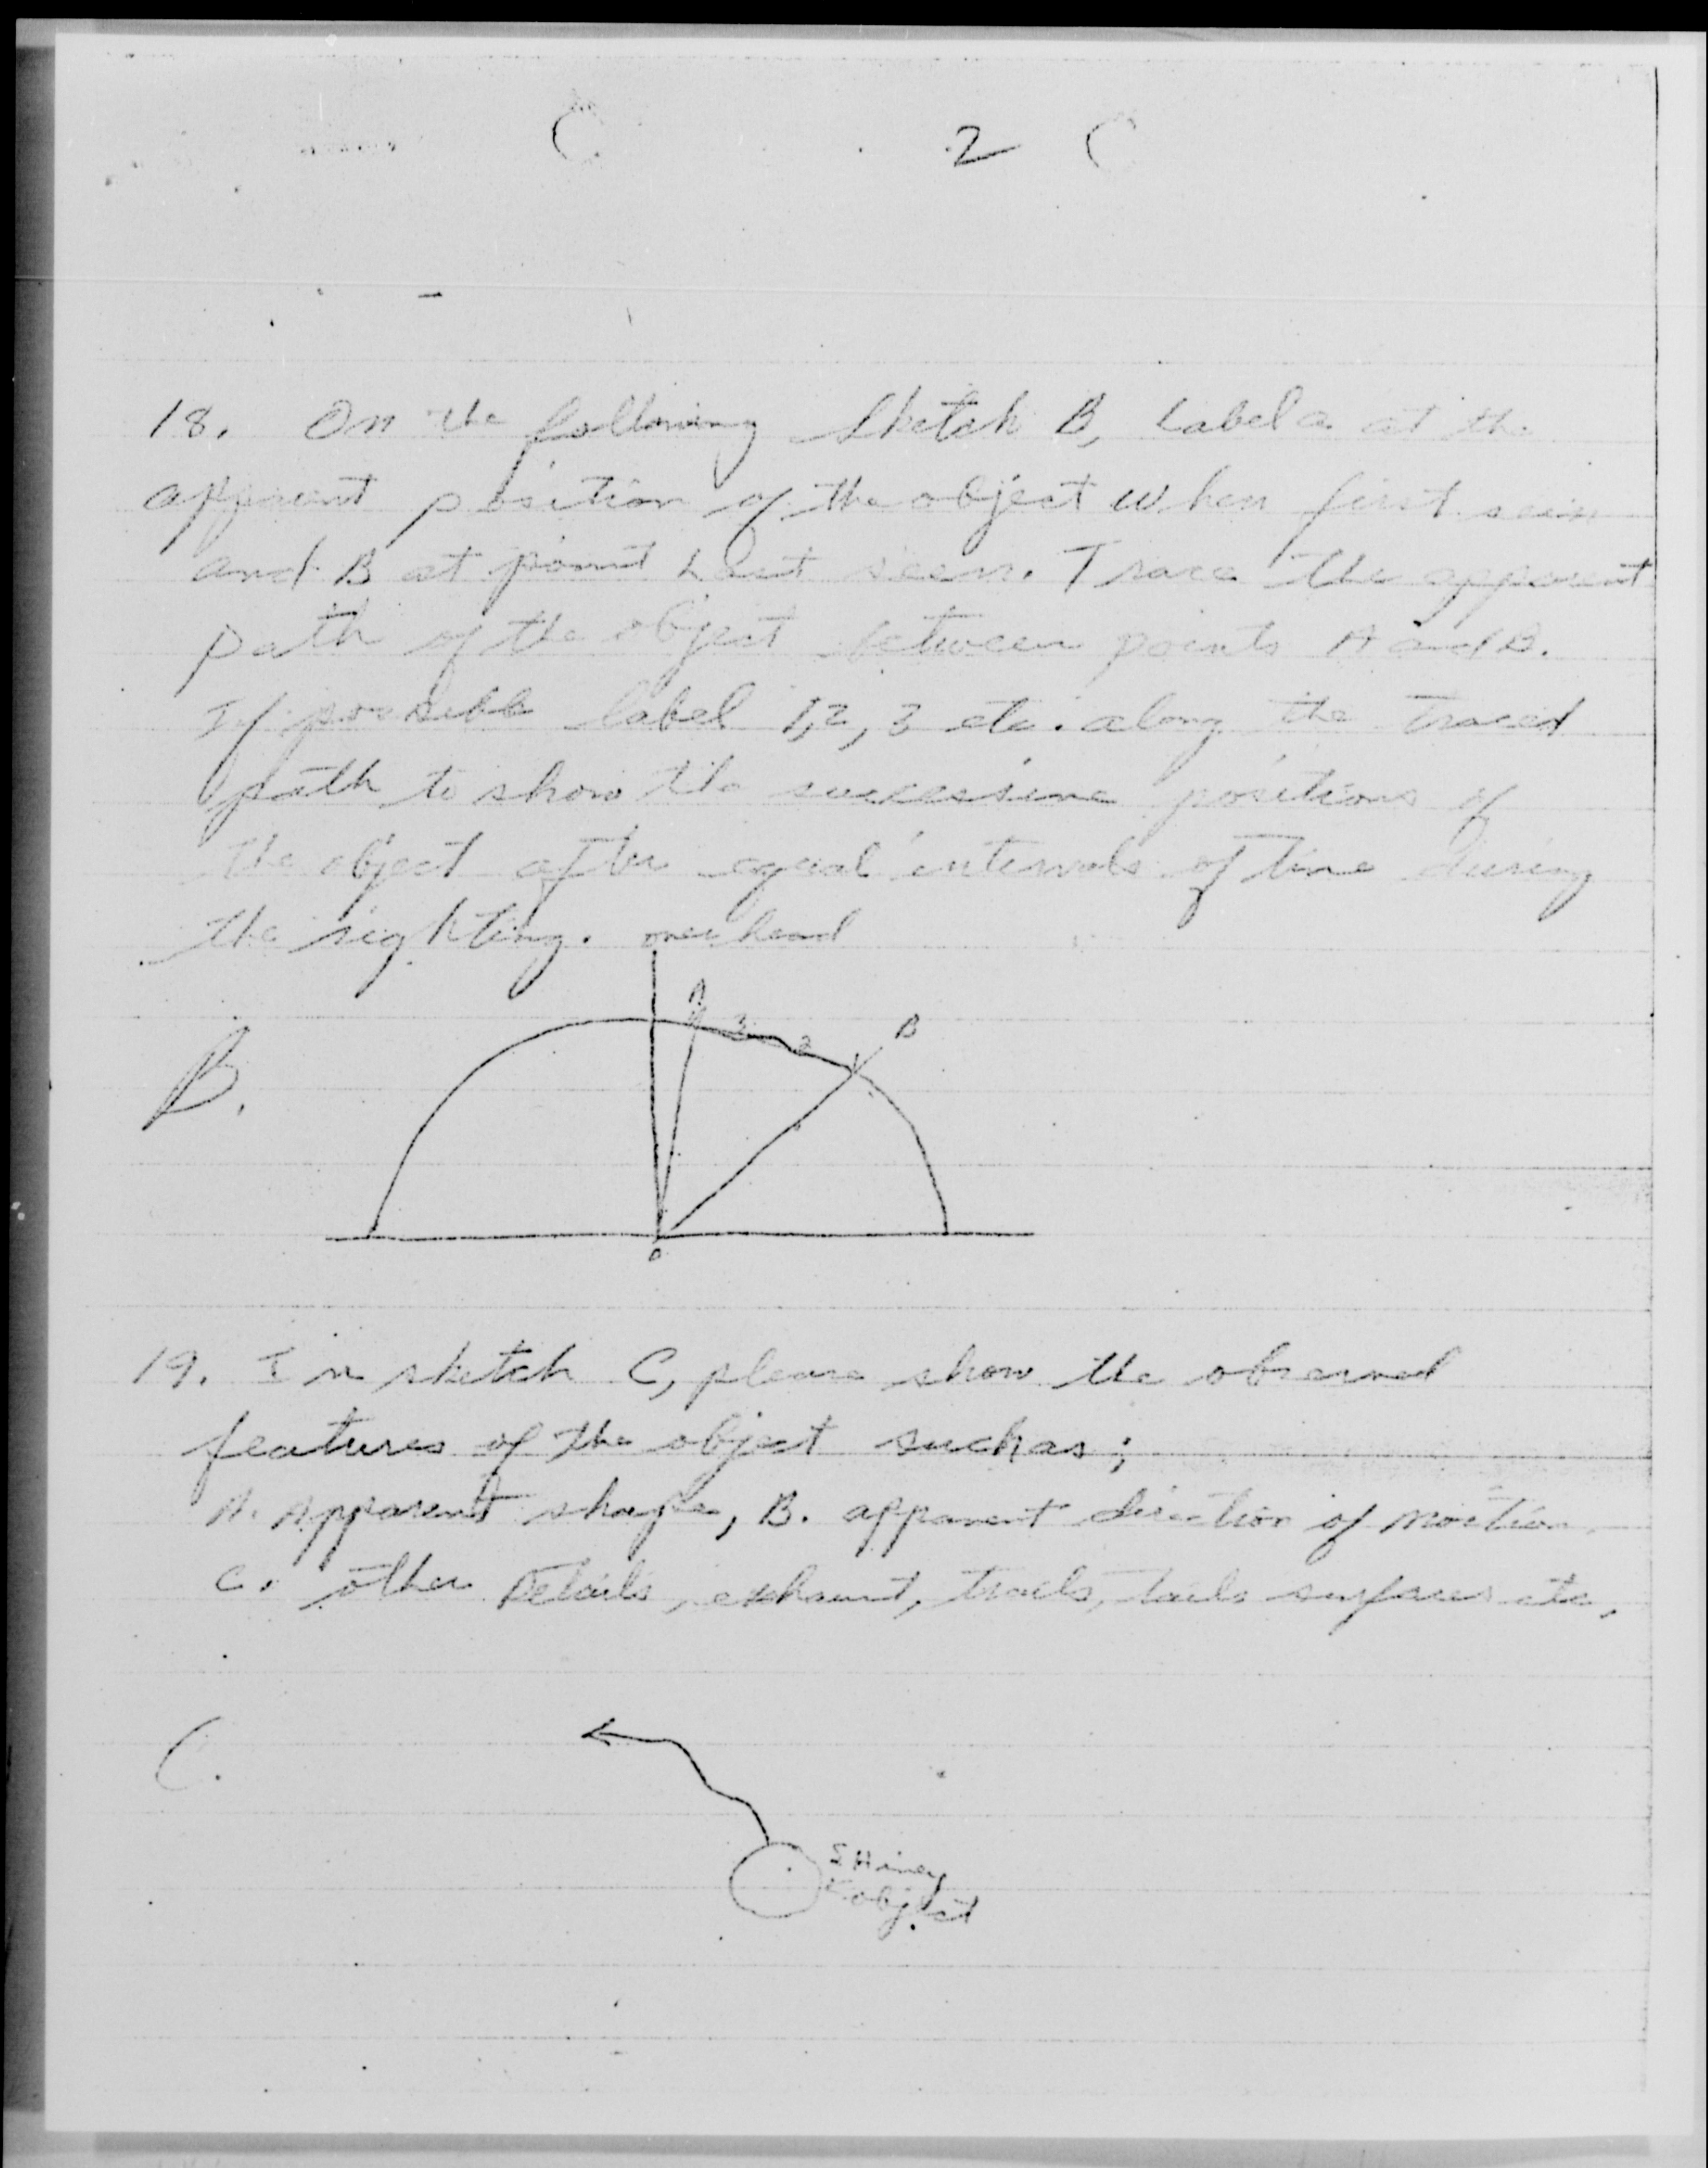 2
18. On the following Sketch B, Label a at the
apparent position of the object when first seen
and B at point Last seen. Trace the apparent
path of the object between points A and B.
If possible label 1,2, 3 etc. along the traced
path to show the successive positions of
the object after equal intervals of time during
the sighting. overhead
A
3
2
B
B.
o
19. In sketch C, please show the observed
features of the object such as;
A. Apparent shape, B. apparent direction of motion
C. other Details, exhaust, trails, tails surfaces etc,
C.
SHiney
object